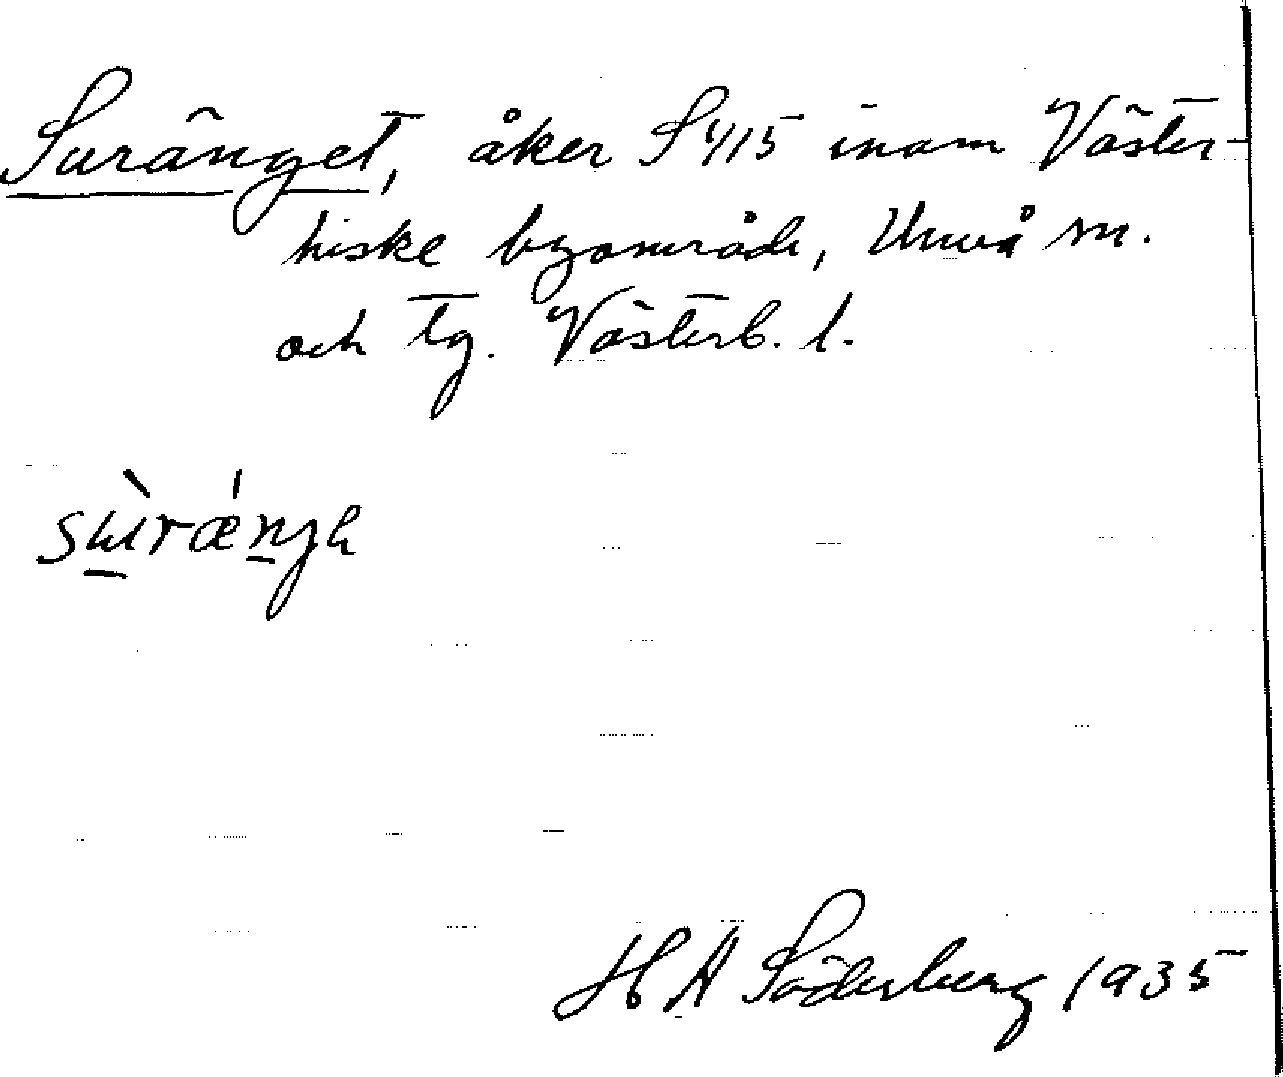 Suränget, åker S4/15 inom Väster-
hiske byområde, Umeå sn.
och tg. Västerb. l.
H A Söderberg 1935